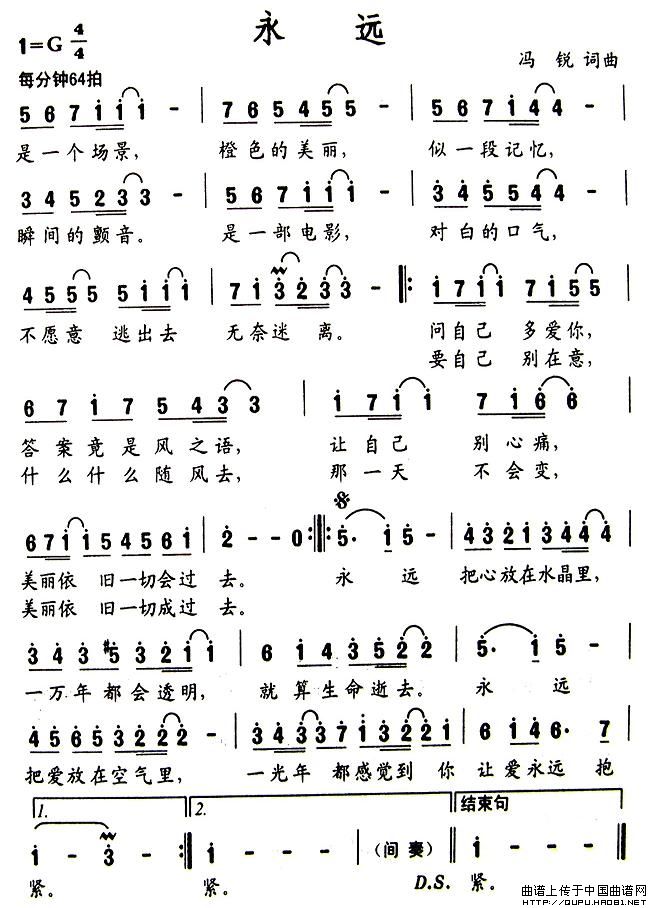 永 远
1=G 4/4
每分钟64拍
冯 锐 词曲
5 6 7 1 1 1 - | 7 6 5 4 5 5 - | 5 6 7 1 4 4 - |
是一个场景， 橙色的美丽， 似一段记忆，
3 4 5 2 3 3 - | 5 6 7 1 1 1 - | 3 4 5 5 4 4 - |
瞬间的颤音。 是一部电影， 对白的口气，
4 5 5 5 5 1 1 1 | 7 1 3 2 3 3 - |: 1 7 1 1 7 1 5 5 |
不愿意 逃出去 无奈迷 离。 问自己 多爱你，
要自己 别在意，
6 7 1 7 5 4 3 3 | 1 7 1 1 7 1 6 6 |
答案竟是风之语， 让自己 别心痛，
什么什么随风去， 那一天 不会变，
6 7 1 1 5 4 5 6 1 | 2 - - 0 :|: 5· 1 5 - | 4 3 2 1 3 4 4 4 |
美丽依 旧一切会过 去。 永 远 把心放在水晶里，
美丽依 旧一切成过 去。
3 4 3 #5 3 2 1 1 | 6 1 4 3 5 2 2 | 5· 1 5 - |
一万年都会透明， 就算生命逝去。 永 远
4 5 6 5 3 2 2 2 - | 3 4 3 3 7 1 3 2 2 1 | 6 1 4 6· 7 |
把爱放在空气里， 一光年 都感觉到 你 让爱永远 抱
1. 2. 结束句
1 - 3 - :| 1 - - - | （间 奏） | 1 - - - |
紧。 紧。 D.S. 紧。
曲谱上传于中国曲谱网
HTTP://QUPU.HAO81.NET